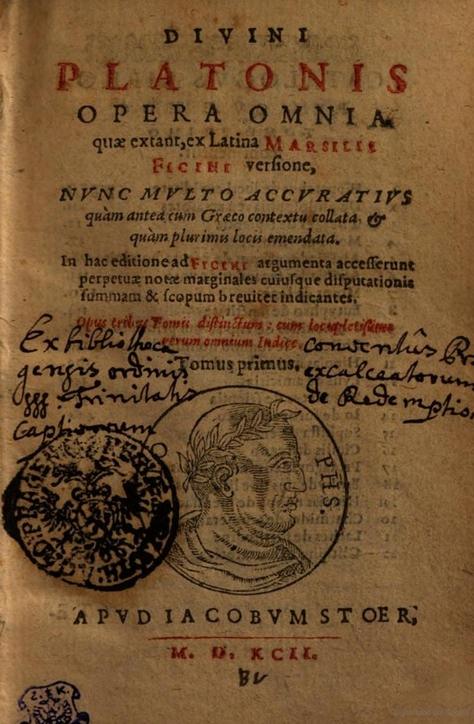 DIVINI
PLATONIS
OPERA OMNIA
quæ extant, ex Latina MARSILII
FICINI versione,
NVNC MVLTO ACCVRATIVS
quàm antea cum Græco contextu collata, &
quàm plurimis locis emendata.
In hac editione ad FICINI argumenta accesserunt
perpetuæ notæ marginales cuiusque disputationis
summam & scopum breuiter indicantes.
Opus tribus Tomis distinctum: cum locupletissimo
rerum omnium Indice.
Tomus primus.
Ex bibliotheca Conventûs
gensis ordinis excalceatorum
Trinitatis de Redemptio
Captivorum
PHS
APVD IACOBVM STOER,
M. D. XCII.